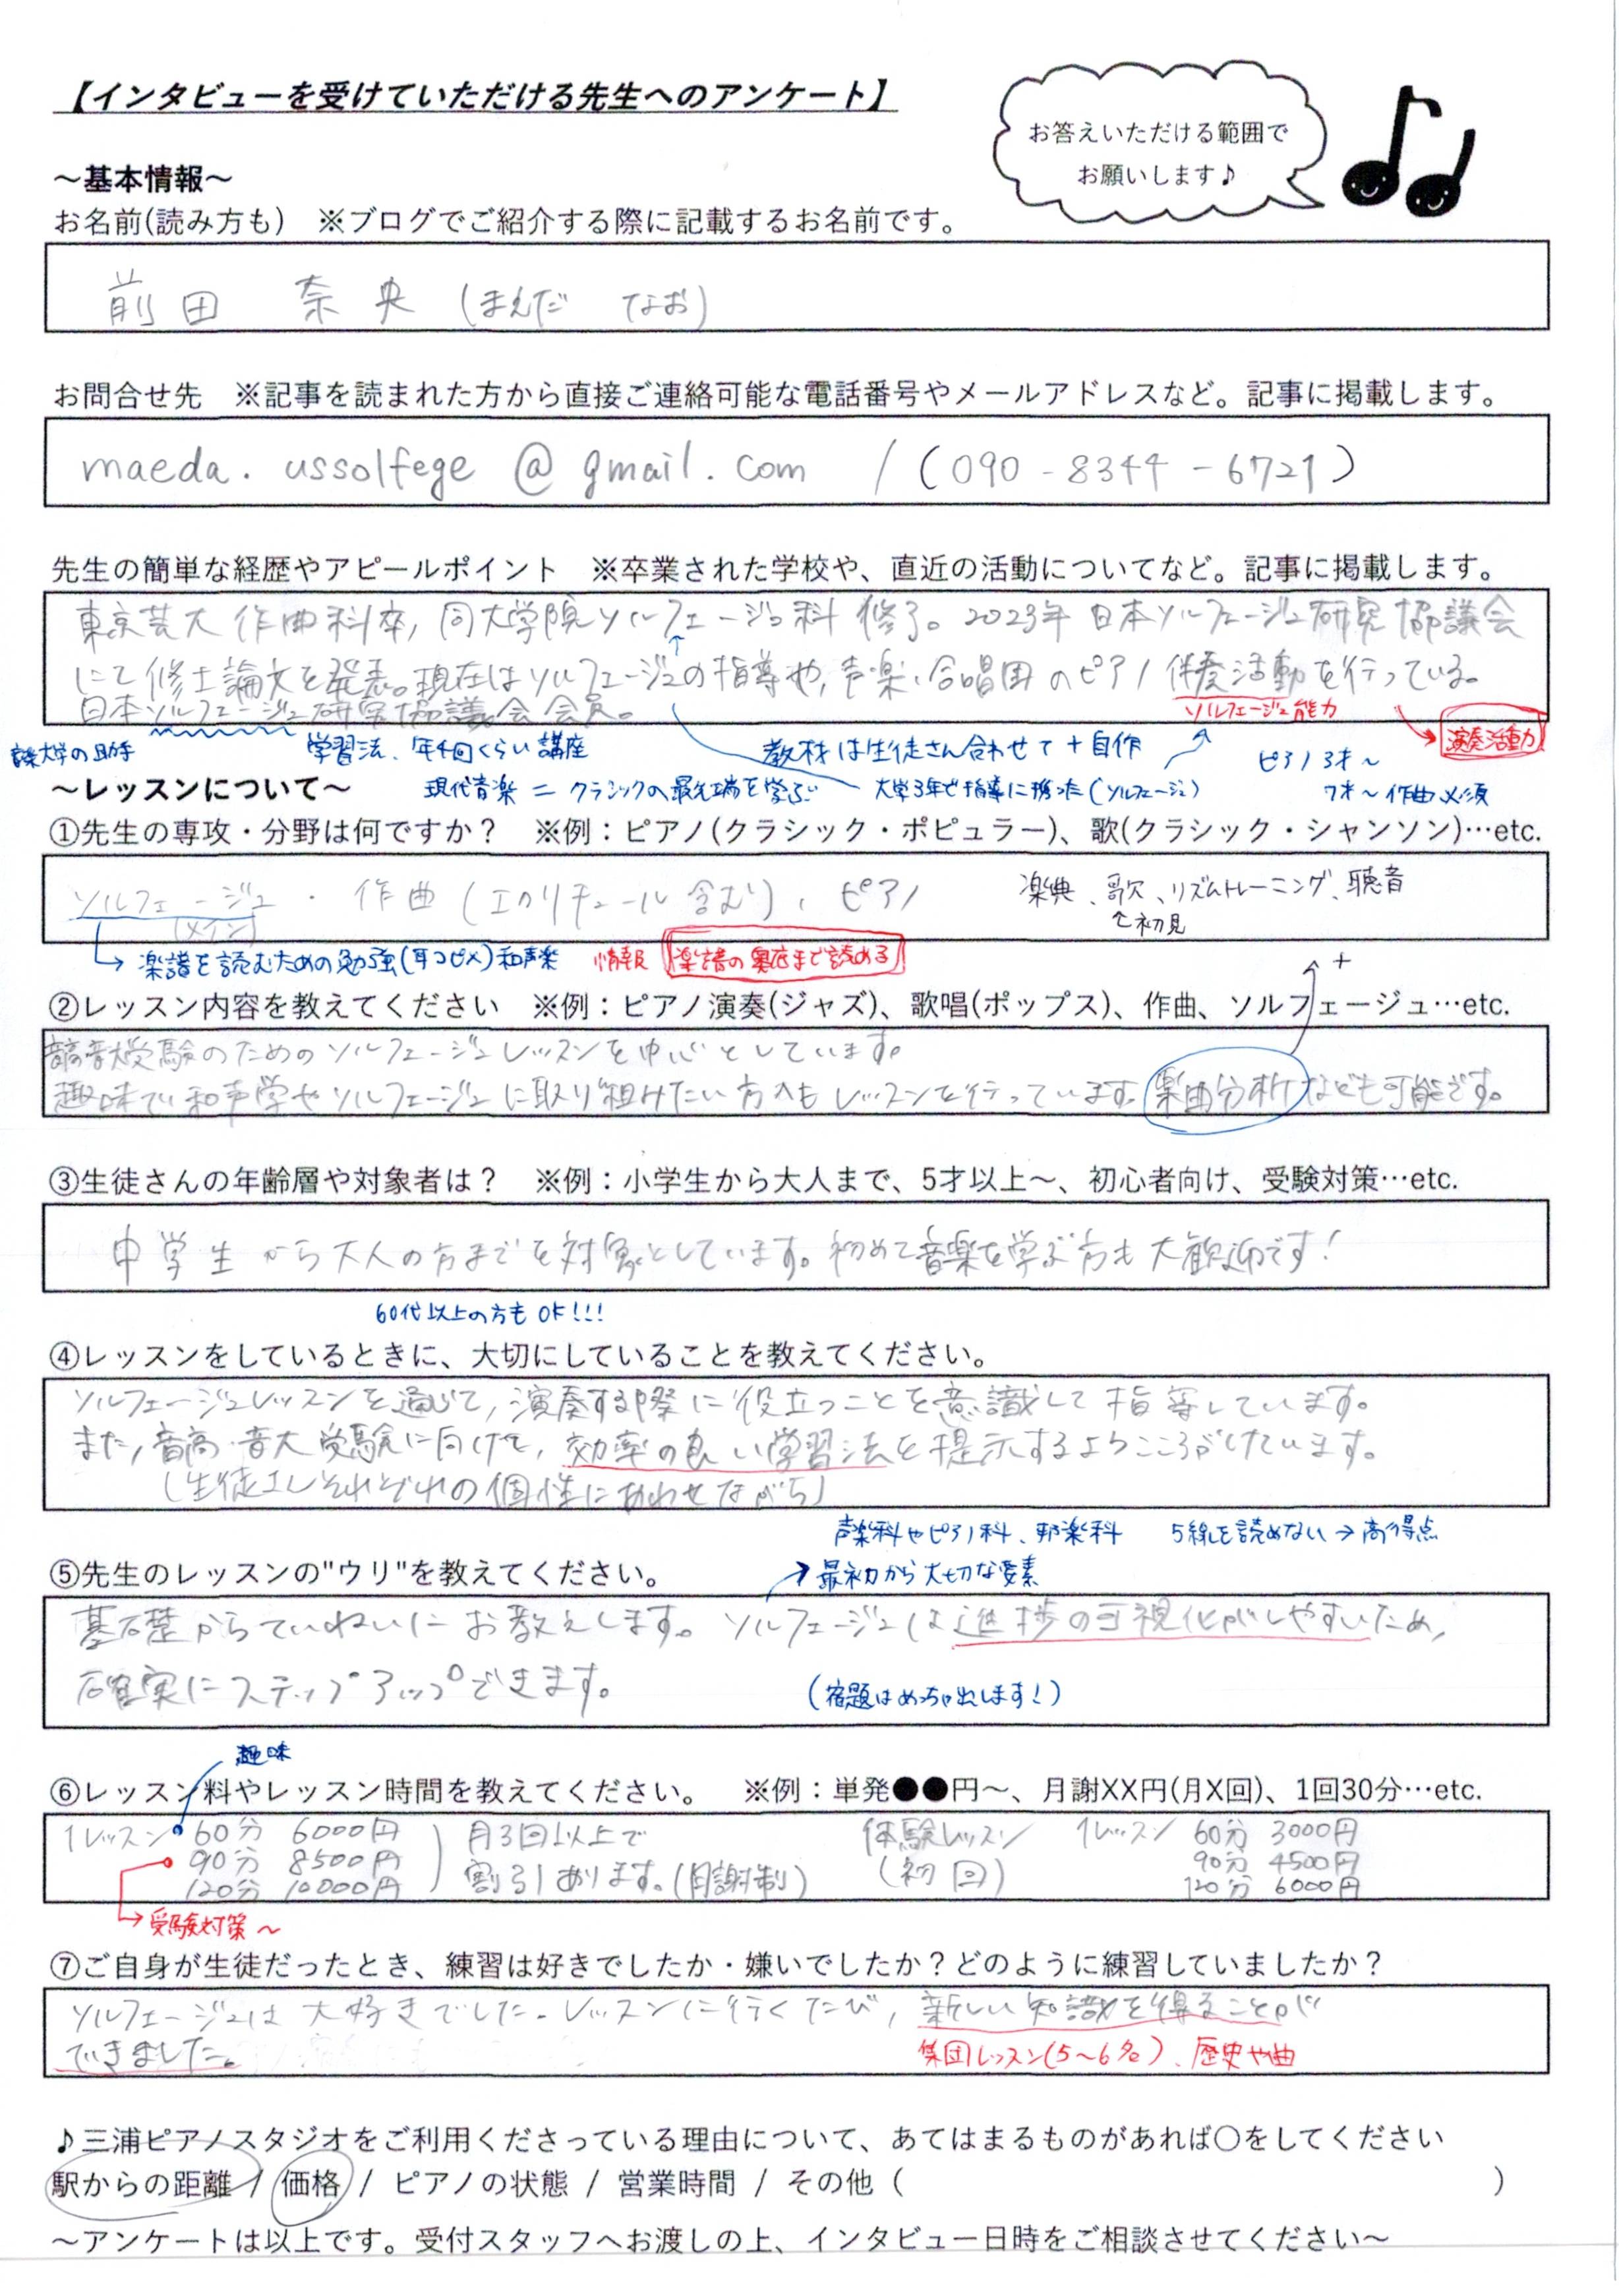 【インタビューを受けていただける先生へのアンケート】
お答えいただける範囲で
お願いします♪
～基本情報～
お名前(読み方も)　※ブログでご紹介する際に記載するお名前です。
前田　奈央（まえだ　なお）
お問合せ先　※記事を読まれた方から直接ご連絡可能な電話番号やメールアドレスなど。記事に掲載します。
maeda.ussolfege@gmail.com / (090-8344-6721)
先生の簡単な経歴やアピールポイント　※卒業された学校や、直近の活動についてなど。記事に掲載します。
東京芸大作曲科卒, 同大学院ソルフェージュ科 修了。2023年 日本ソルフェージュ研究協議会
にて修士論文を発表。現在はソルフェージュの指導や, 声楽、合唱団のピアノ伴奏活動を行っている。
日本ソルフェージュ研究協議会 会員。
ソルフェージュ能力
演奏活動
音楽大学の助手
学習法、年4回くらい講座
教材は生徒さん合わせて＋自作
ピアノ3才～
～レッスンについて～
現代音楽＝クラシックの最先端を学ぶ
大学3年で指導に携った(ソルフェージュ)
7才～作曲必須
①先生の専攻・分野は何ですか？　※例：ピアノ(クラシック・ポピュラー)、歌(クラシック・シャンソン)…etc.
ソルフェージュ・作曲（エクリチュール含む）、ピアノ
(メイン)
楽典、歌、リズムトレーニング、聴音
初見
→楽譜を読むための勉強(耳コピ×)和声楽
情報 楽譜の奥底まで読める
＋
②レッスン内容を教えてください　※例：ピアノ演奏(ジャズ)、歌唱(ポップス)、作曲、ソルフェージュ…etc.
音高音大受験のためのソルフェージュレッスンを中心としています。
趣味で和声学やソルフェージュに取り組みたい方へもレッスンを行っています。楽曲分析なども可能です。
③生徒さんの年齢層や対象者は？　※例：小学生から大人まで、5才以上～、初心者向け、受験対策…etc.
中学生から大人の方までを対象としています。初めて音楽を学ぶ方も大歓迎です！
60代以上の方もOK!!!
④レッスンをしているときに、大切にしていることを教えてください。
ソルフェージュレッスンを通じて, 演奏する際に役立つことを意識して指導しています。
また, 音高・音大受験に向けて, 効率の良い学習法を提示するようこころがけています。
(生徒さんそれぞれの個性にあわせながら)
声楽科やピアノ科、邦楽科　5線を読めない→高得点
⑤先生のレッスンの"ウリ"を教えてください。
→最初から大切な要素
基礎からていねいにお教えします。ソルフェージュは進捗の可視化がしやすいため,
確実にステップアップできます。
(宿題はめっちゃ出します！)
趣味
⑥レッスン料やレッスン時間を教えてください。　※例：単発●●円～、月謝XX円(月X回)、1回30分…etc.
1レッスン 60分 6000円
90分 8500円
120分 10000円
月3回以上で
割引あります。(月謝制)
体験レッスン
(初回)
1レッスン 60分 3000円
90分 4500円
120分 6000円
→受験対策～
⑦ご自身が生徒だったとき、練習は好きでしたか・嫌いでしたか？どのように練習していましたか？
ソルフェージュは大好きでした。レッスンに行くたび, 新しい知識を得ることが
できました。
集団レッスン(5～6名)、歴史や曲
♪三浦ピアノスタジオをご利用くださっている理由について、あてはまるものがあれば○をしてください
駅からの距離 / 価格 / ピアノの状態 / 営業時間 / その他（　　　）
～アンケートは以上です。受付スタッフへお渡しの上、インタビュー日時をご相談させてください～